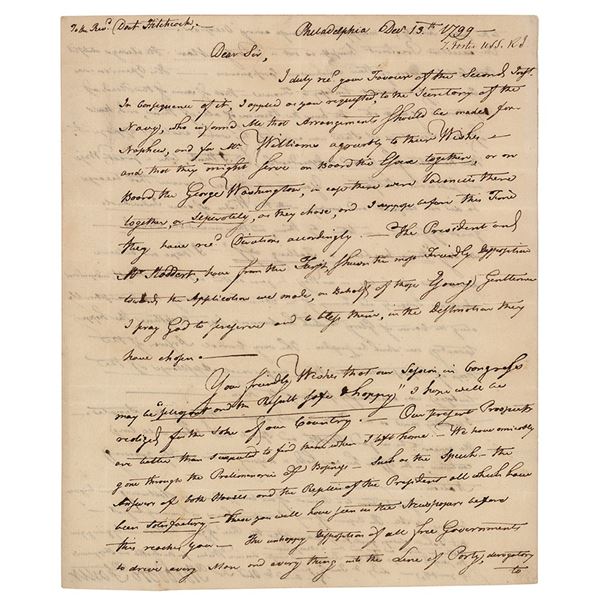 To the Rev.d Doct Hitchcock,—
Philadelphia Dec.r 13.th 1799—
T. Foster U.S.S. R.I
Dear Sir,
I duly rec.d your Favour of the Second Inst.
In Consequence of it, I applied as you requested, to the Secretary of the
Navy, who informed Me that Arrangements should be made for
Nephew, and for Mr. Williams agreeably to their Wishes—
and that they might serve on Board the Essex together, or on
Board the George Washington, in case there were Vacancies there
together, or seperately, as they chose, and I suppose before this Time
they have rec.d Directions accordingly— The President and
Mr. Stoddert, have from the First, shewn the most Friendly Disposition
towards the Application we made, on Behalf of those Young Gentlemen
I pray God to preserve and to bless them, in the Destination they
have chosen.—
Your friendly Wishes that our Session in Congress
may be "pleasant and the Result safe & happy" I hope will be
realized for the Sake of our Country.— Our present Prospects
are better than I expected to find them when I left home— We have amicably
gone through the Preliminaries of Business— Such as the Speech— the
Answers of both Houses and the Replies of the President all which have
been satisfactory— These you will have seen in the Newspapers before
this reaches you— The unhappy Disposition of all free Governments
to drive every Man and every thing into the Line of Party, derogatory
to